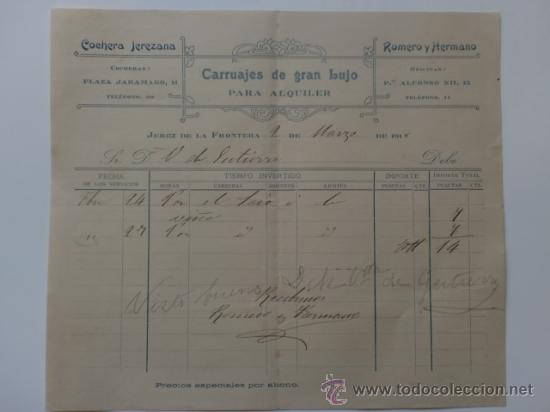 Cochera Jerezana
Romero y Hermano
COCHERAS:
PLAZA JARAMAGO, 11
TELÉFONO,
Carruajes de gran Lujo
PARA ALQUILER
OFICINAS:
P.ª ALFONSO XII, 13
TELÉFONO, 14
JEREZ DE LA FRONTERA 2 DE Marzo DE 191
Sr. D. V de Gutierrez Debe
FECHA DE LOS SERVICIOS
TIEMPO INVERTIDO
IMPORTE
IMPORTE TOTAL
HORAS CARRERAS ASIENTOS AJUSTES
PESETAS CTS. PESETAS CTS.
24 Por el
7
" 27 Por " " 7
14
Visto bueno de Gutierrez
Recibimos
Romero y Hermano
Precios especiales por abono.
www.todocoleccion.net